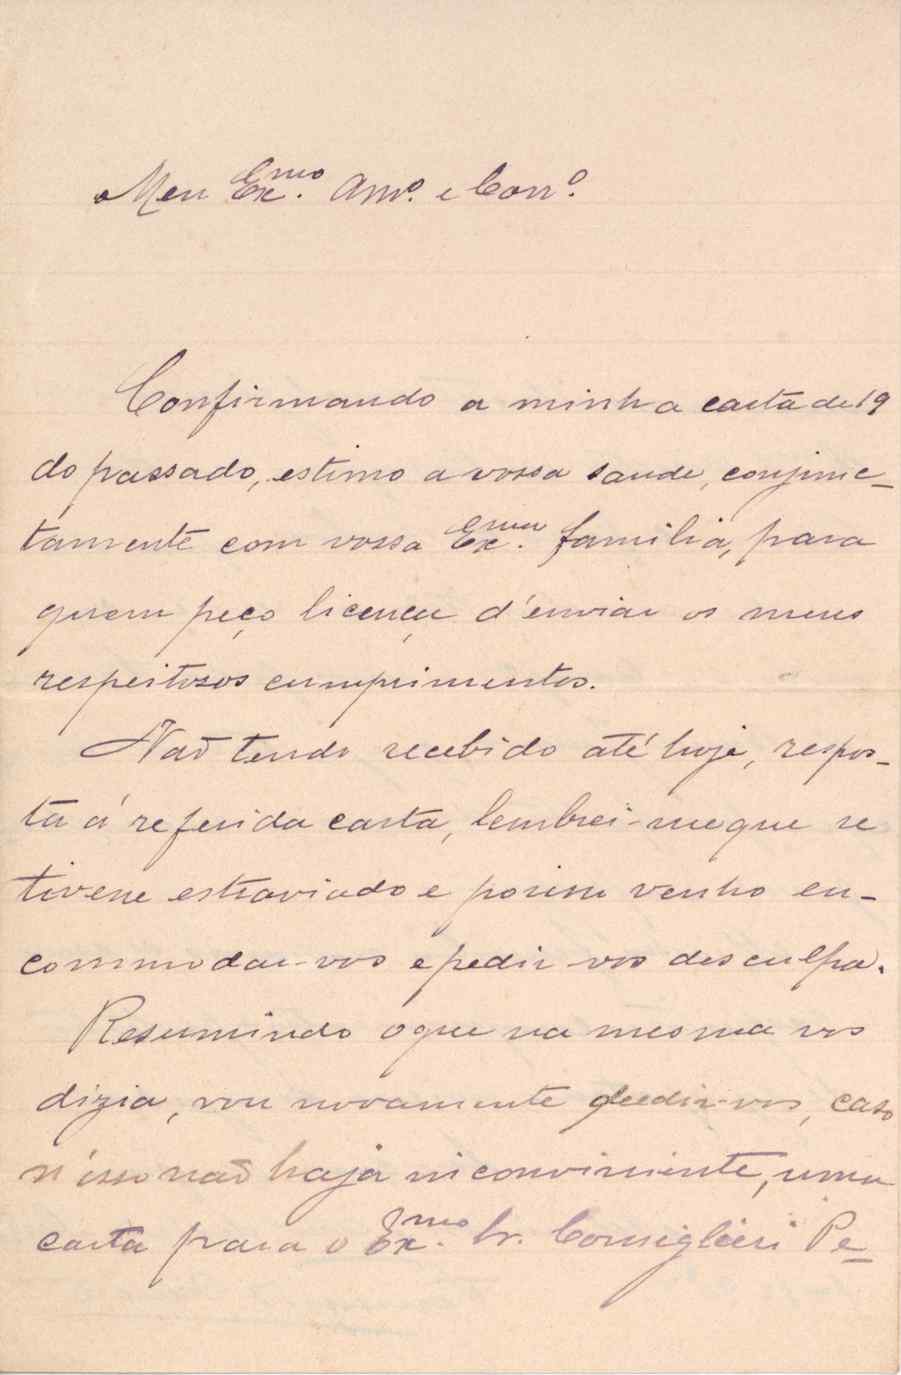 Meu Ex.mo Am.o e Corr.o
Confirmando a minha carta de 19
do passado, estimo a vossa saude, conjunc-
tamente com vossa Ex.ma familia, para
quem peço licença d'enviar os meus
respeitosos cumprimentos.
Não tendo recebido até hoje, respos-
ta á referida carta, lembrei-me que se
tivesse estraviado e porisso venho en-
commodar-vos e pedir-vos desculpa.
Resumindo o que na mesma vos
dizia, vou novamente pedir-vos, caso
n'isso não haja inconviniente, uma
carta para o Ex.mo Sr. Consiglieri Pe-